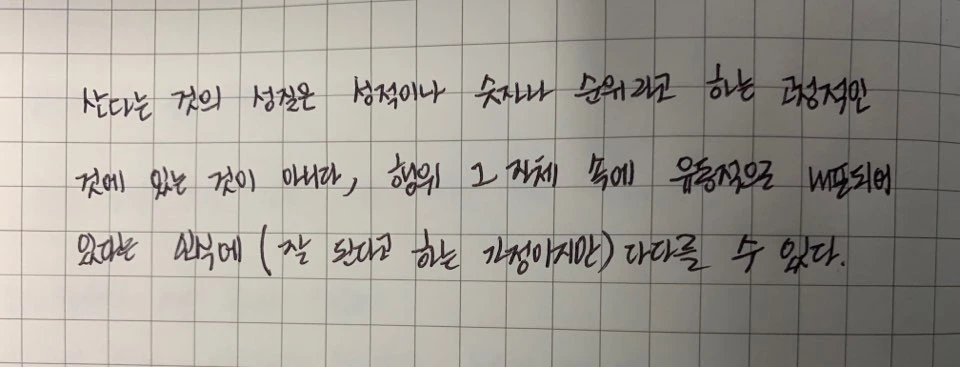 산다는 것의 성질은 성적이나 숫자나 순위라고 하는 고정적인
것에 있는 것이 아니라, 행위 그 자체 속에 유동적으로 내포되어
있다는 인식에 (잘 된다고 하는 가정이지만) 다다를 수 있다.